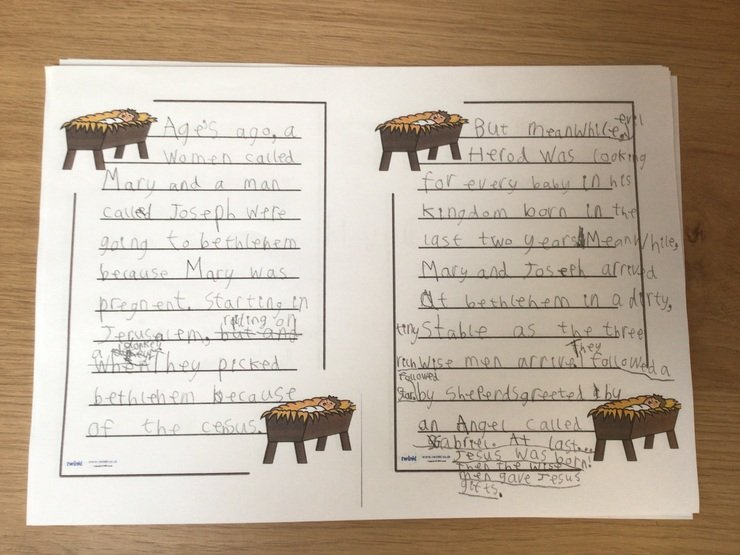 Age's ago, a
Women called
Mary and a man
called Joseph were
going to bethlehem
because Mary was
pregnent. Starting in
riding on
Jerusalem, but and
a donkey
they picked
bethlehem because
of the cesus.
twinkl
But meanwhile, evil
Herod was looking
for every baby in his
Kingdom born in the
last two years. Meanwhile,
Mary and Joseph arrived
At bethlehem in a dirty,
tiny Stable as the three
They
rich Wise men arrive followed a
Followed
star by Sheperds greeted by
an Angel called
Gabriel. At last...
Jesus was born!
then the wise
men gave Jesus
gifts.
twinkl